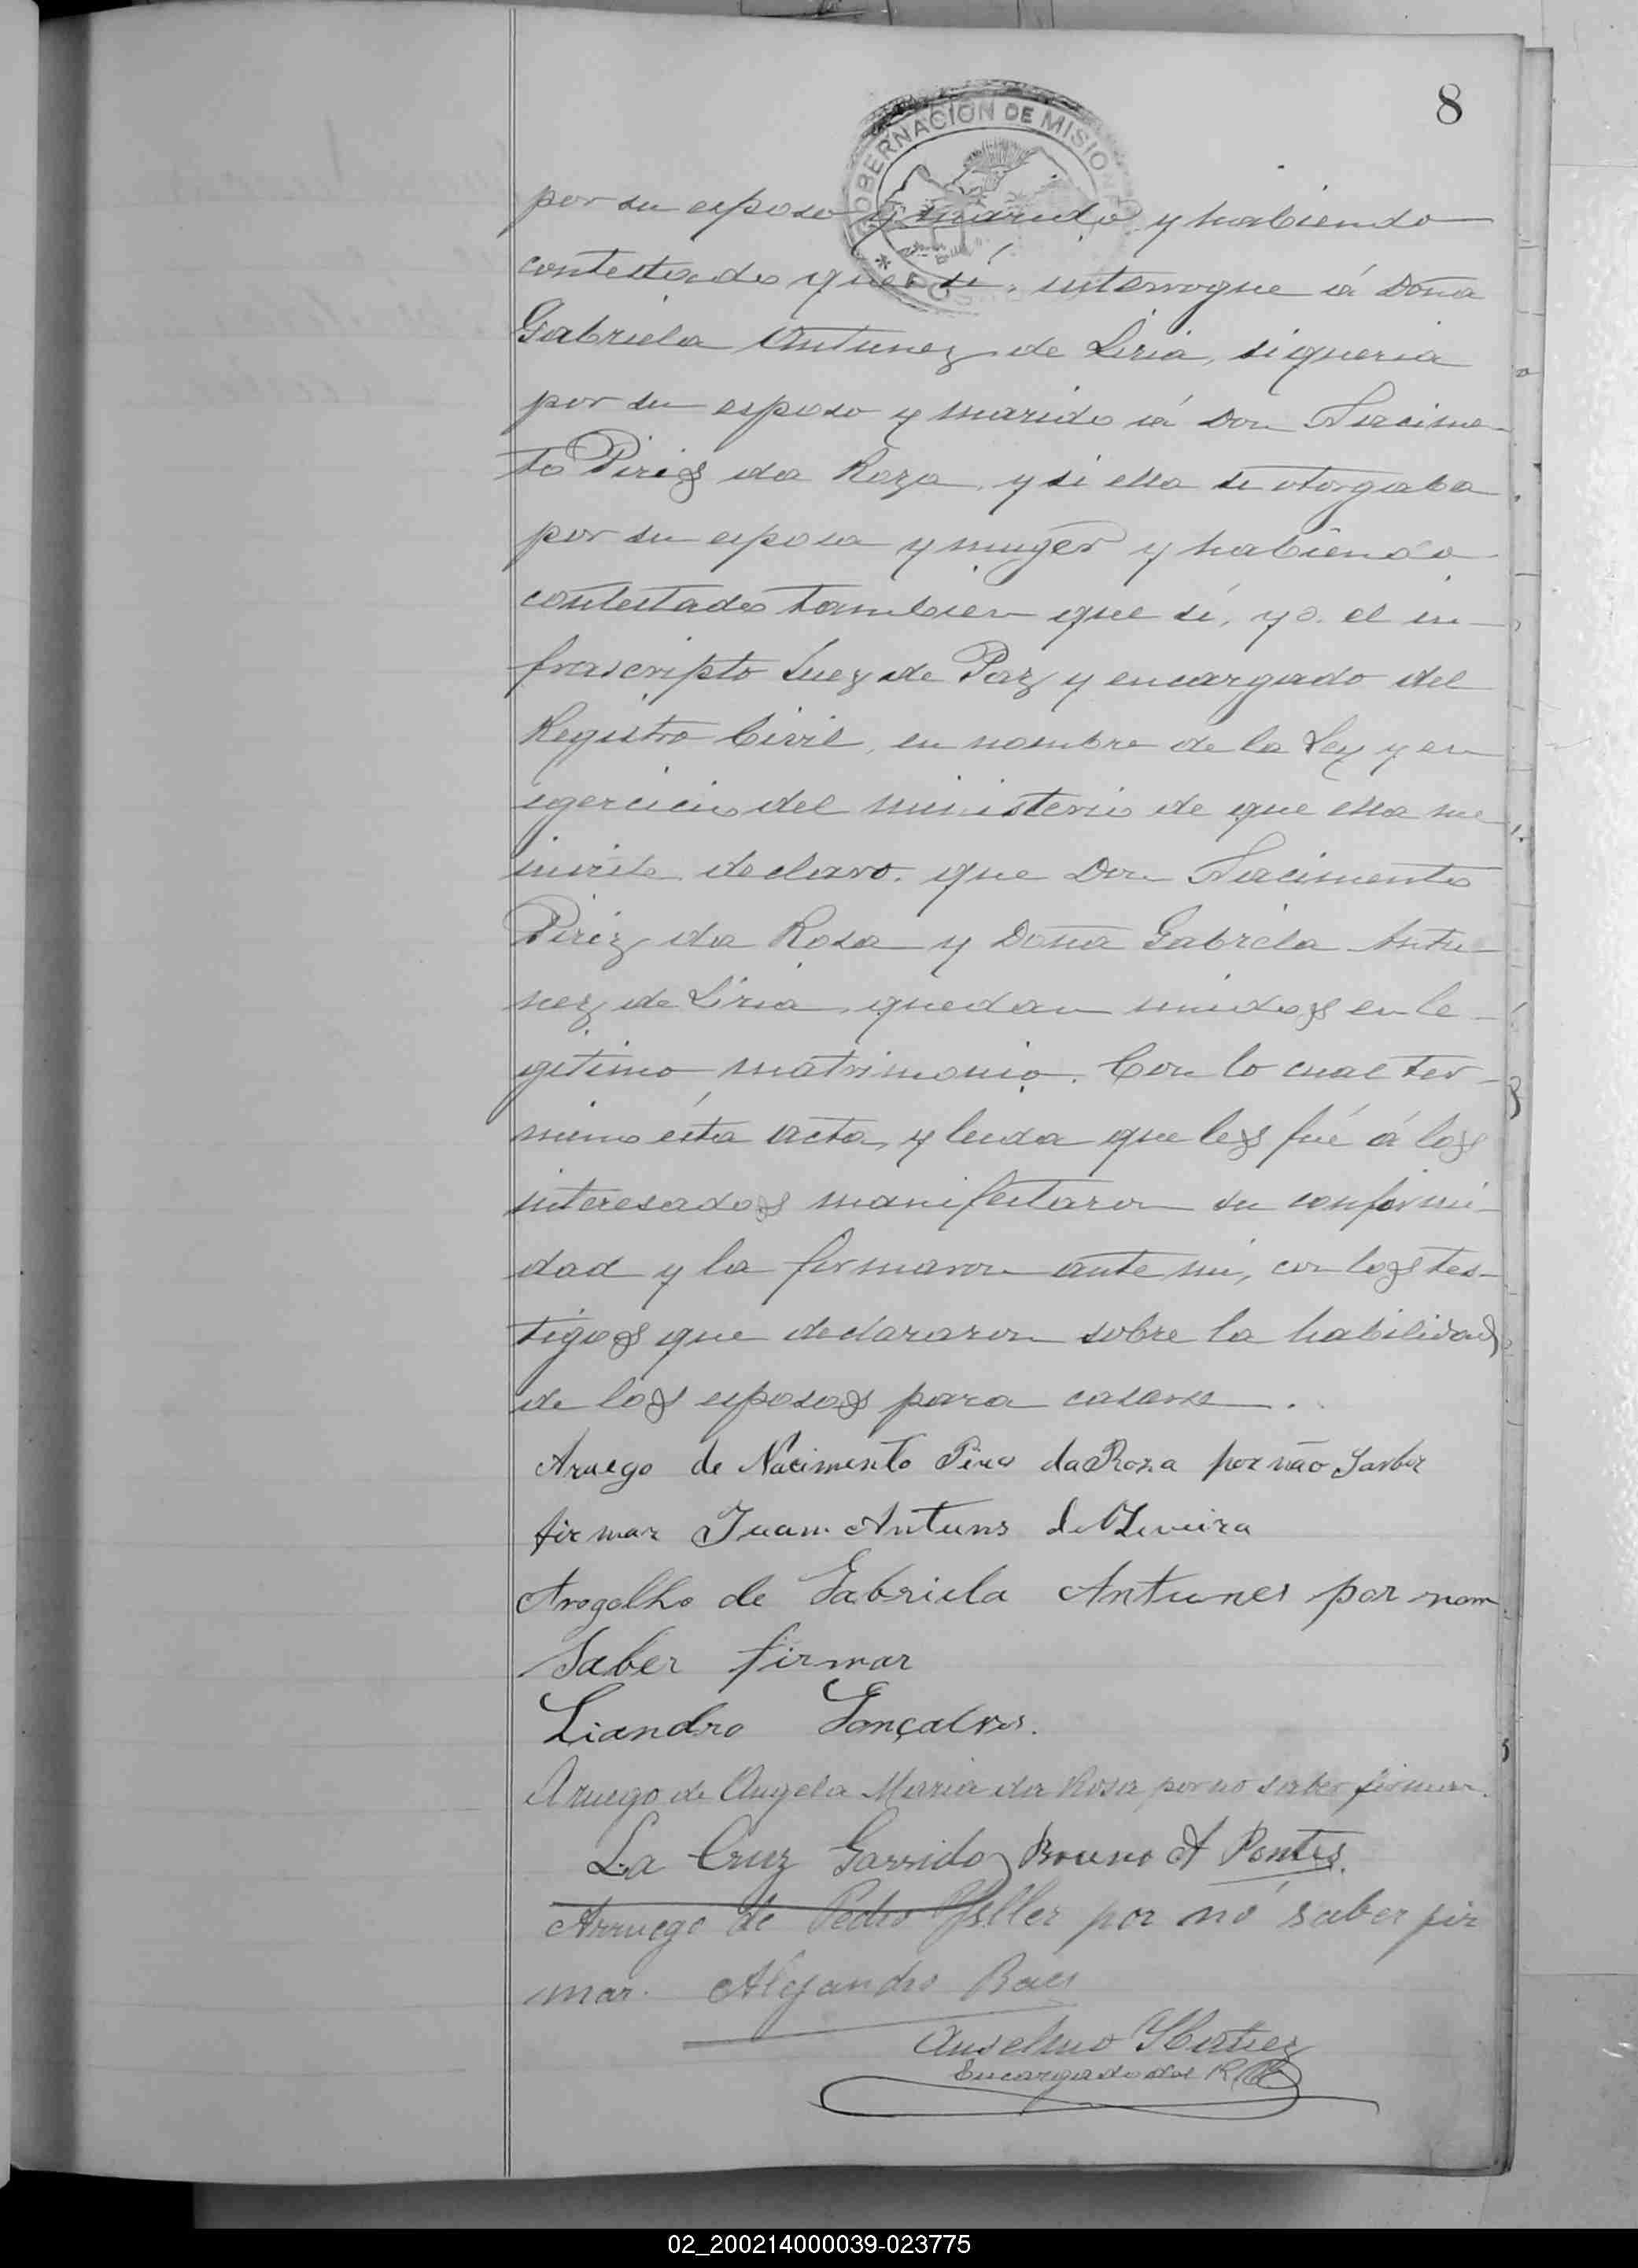 8
GOBERNACIÓN DE MISIO
por su esposo y marido y habiendo
contestado que sí, interrogue á Doña
Gabriela Antunez de Liria, si queria
por su esposo y marido á Don Nacimen-
to Pirez da Roza, y si ella se otorgaba
por su esposa y muger y habiendo
contestado tambien que sí, yo el in-
frascripto Juez de Paz y encargado del
Registro Civil, en nombre de la Ley y en
egercicio del ministerio de que ella me
inviste declaro, que Don Nacimento
Pirez da Rosa y Doña Gabriela Antu-
nez de Liria, quedan unidos en le-
gitimo matrimonio. Con lo cual ter-
mino ésta acta, y leida que les fué á los
interesados manifestaron su conformi-
dad y la firmaron ante mi, con los tes-
tigos que declararon sobre la habilidad
de los esposos para casarse.
Aruego de Nacimento Pires da Roza por não
firmar Juan Antuns
Arogolho de Gabriela Antunes por nam
Saber firmar
Liandro Gonçalves.
A ruego de Angela Maria da Rosa por no saber firmar.
La Cruz Garrido Bruno A Pontes.
Arruego de Pedro por nó saber fir
mar. Alejandro Baes
Anselmo
Encargado del R. C.
02_200214000039-023775